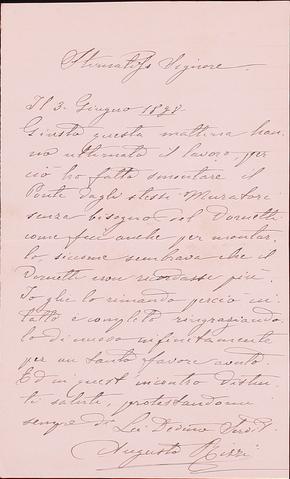 Stimatṃo Signore
Il 3. Giugno 1898
Giusto questa mattina han=
no ultimato il lavoro, per
ciò ho fatto smontare il
Ponte dagli stessi Muratori
senza bisogno del Dornetti
come feci anche per montar
lo, siccome sembrava che il
Dornetti non ricordasse più.
Io glie lo rimando perciò in=
tatto e completo ringraziando
lo di nuovo infinitamente
per un tanto favore avuto.
Ed in quest incontro distin=
ti saluti, protestandomi
sempre di Lei
Augusto Rizzi